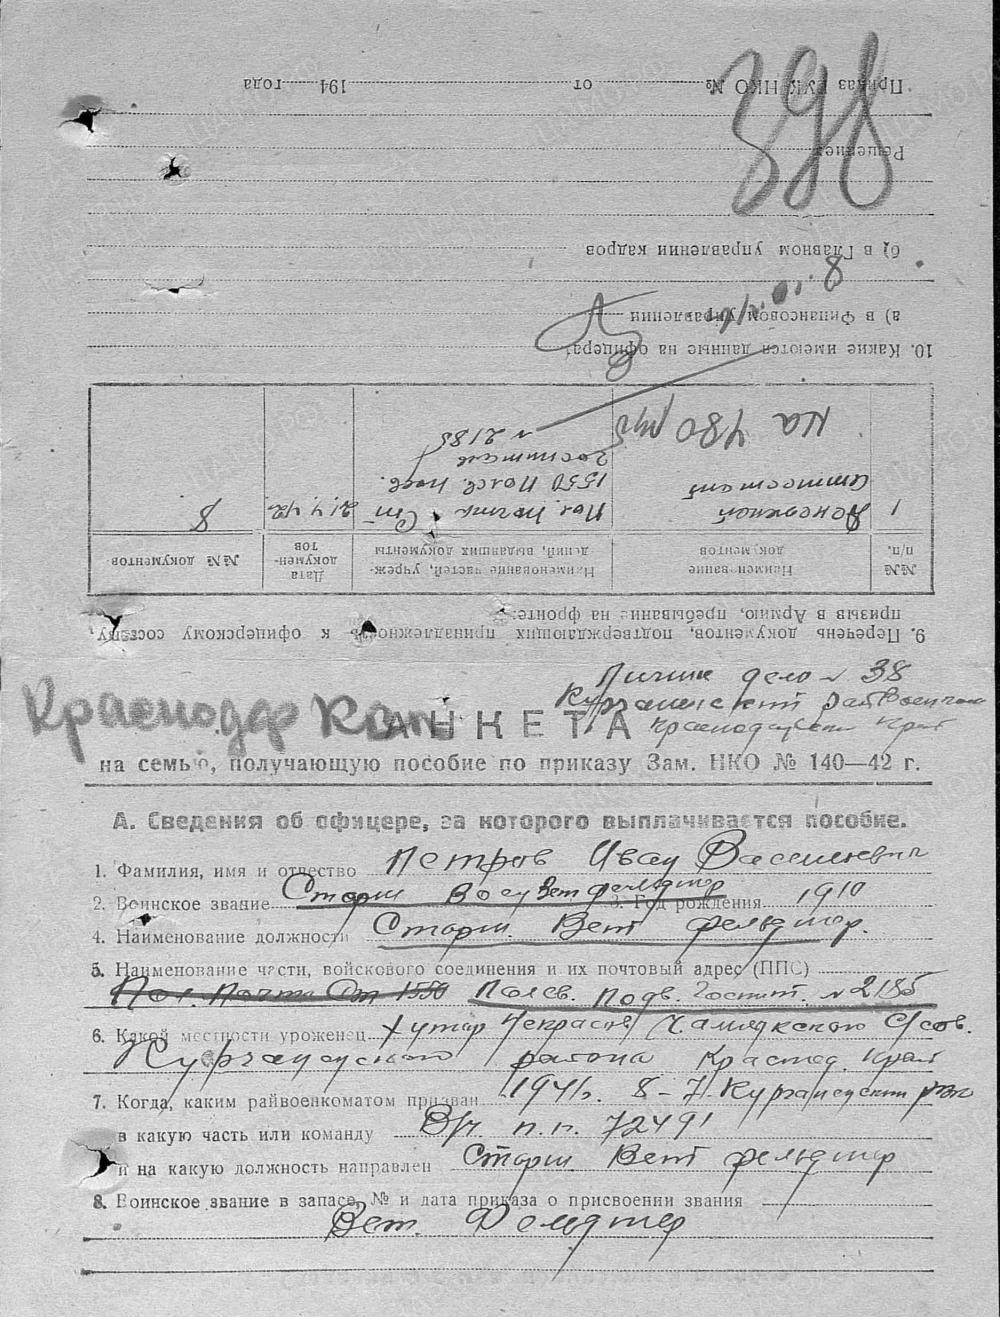 Краснодар Кр
Личное дело № 38
Курганинский райвоенком
Краснодарский край
АНКЕТА
на семью, получающую пособие по приказу Зам. НКО № 140—42 г.
А. Сведения об офицере, за которого выплачивается пособие.
1. Фамилия, имя и отчество Петров Иван Васильевич
2. Воинское звание Старш Воен Вет фельдшер 3. Год рождения 1910
4. Наименование должности Старш. Вет фельдшер.
5. Наименование части, войскового соединения и их почтовый адрес (ППС)
Пол. почта Ст 1550 Полев. Подв. Госпит. № 2185
6. Какой местности уроженец Хутор Некрасов Чамлыкского С/сов.
Курганенского района Краснод. Край
7. Когда, каким райвоенкоматом призван 1941г. 8-7. Курганенский рвк
в какую часть или команду В/ч. п.п. 72491
и на какую должность направлен Старш Вет фельдшер
8. Воинское звание в запасе, № и дата приказа о присвоении звания
Вет. Фельдшер
9. Перечень документов, подтверждающих принадлежность к офицерскому составу,
призыв в Армию, пребывание на фронте:
№№ п/п. Наименование документов Наименование частей, учреждений, выдавших документы Дата документов №№ документов
1 Денежный Пол. почта Ст 21.4.42 8
аттестат 1550 Полев. подв.
госпиталь
на 480 руб № 2185
10. Какие имеются данные на офицера:
а) в Финансовом управлении
б) в Главном управлении кадров
Решение:
Приказ ГУК НКО № от 194 года
398